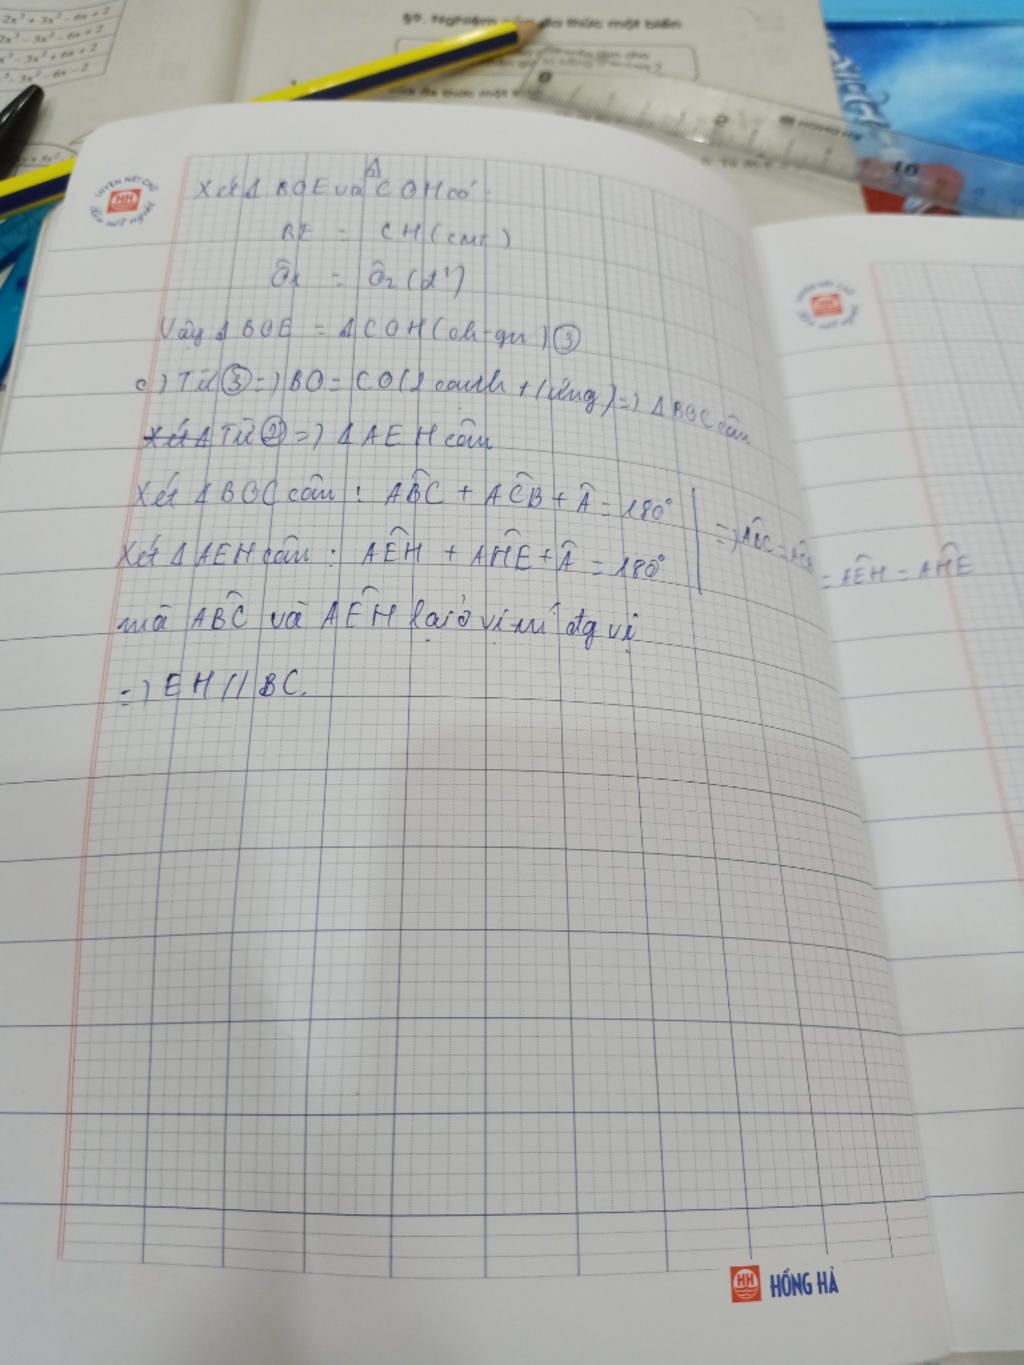 2x³ + 3x² - 6x + 2
2x³ - 3x² - 6x + 2
x³ - 3x² + 6x + 2
x³ - 3x² - 6x - 2
§9. Nghiệm của đa thức một biến
LUYỆN NÉT CHỮ
HH
RÈN NẾT NGƯỜI
Xét Δ BOE và Δ COH có:
BE = CH (cmt)
Ô1 = Ô2 (đ²)
Vậy Δ BOE = Δ COH (ch-gn) ③
c) Từ ③ => BO = CO (2 cạnh t/ứng) => Δ BOC cân
Xét Δ Từ ② => Δ AEH cân
Xét Δ BOC cân : ABC + ACB + Â = 180°
Xét Δ AEH cân : AEH + AHE + Â = 180°
=> ABC = ACB = AEH = AHE
mà ABC và AEH lại ở vị trí đg vị
=> EH // BC.
10
HH HỒNG HÀ